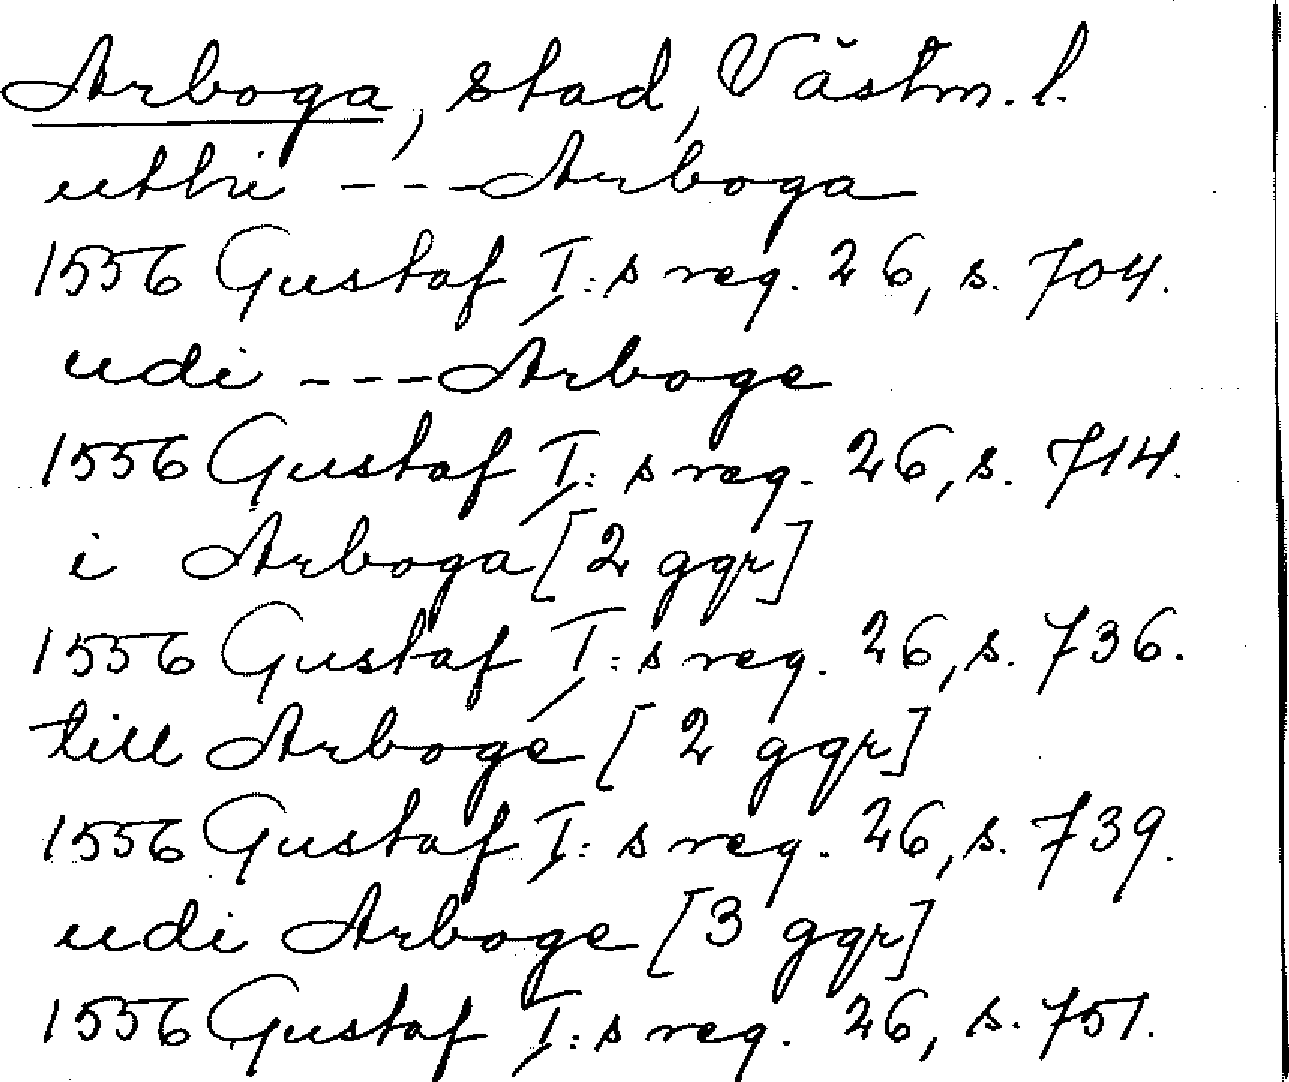 Arboga, stad, Västm. l.
uthi --- Arboga
1556 Gustaf I:s reg. 26, s. 704.
udi --- Arboge
1556 Gustaf I:s reg. 26, s. 714.
i Arboga [2 ggr]
1556 Gustaf I:s reg. 26, s. 736.
till Arboge [2 ggr]
1556 Gustaf I:s reg. 26, s. 739.
udi Arboge [3 ggr]
1556 Gustaf I:s reg. 26, s. 751.